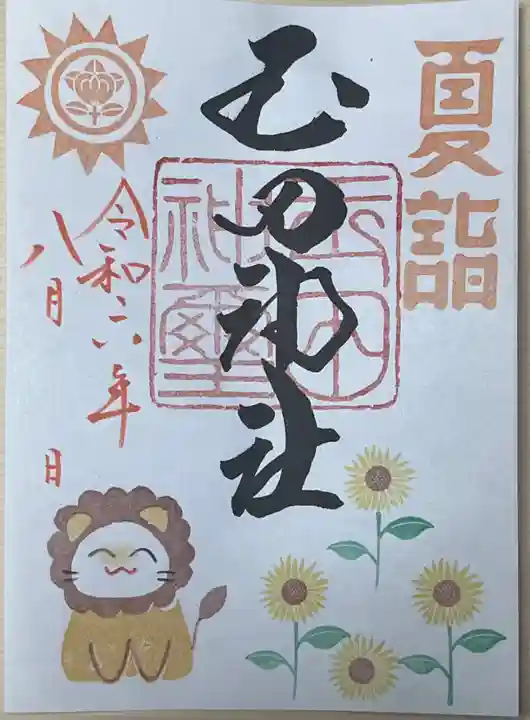 夏詣
玉田神社
玉田
神璽
令和六年
八月 日